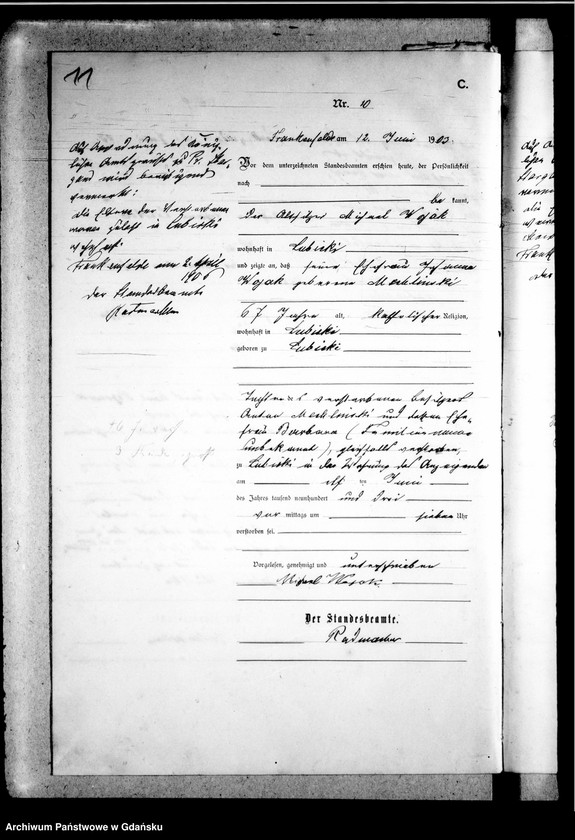 11
C.
Nr. 10
Frankenfelde am 12. Juni 1903.
Vor dem unterzeichneten Standesbeamten erschien heute, der Persönlichkeit
nach
be kannt,
Der Altsitzer Michael Wojak
wohnhaft in Lubicki
und zeigte an, daß seine Ehefrau Johanna
Wojak geborene
67 Jahre alt, katholischer Religion,
wohnhaft in Lubicki
geboren zu Lubicki
Tochter des verstorbenen Besitzers
Anton und dessen Ehe-
frau Barbara (Familienname
unbekannt), gleichfalls verstorben,
zu Lubicki in der Wohnung des Anzeigenden
am elf ten Juni
des Jahres tausend neunhundert und drei
vor mittags um sieben Uhr
verstorben sei.
Vorgelesen, genehmigt und unterschrieben
Wojak
Der Standesbeamte.
Radmacher
Auf Anordnung des König-
lichen Amtsgerichts zu Pr. Star-
gard wird berichtigend
vermerkt:
die Eltern der Verstorbenen
waren zuletzt in Lubicki
wohnhaft.
Frankenfelde am 2. April
1906
Der Standesbeamte
Radmacher
Archiwum Państwowe w Gdańsku